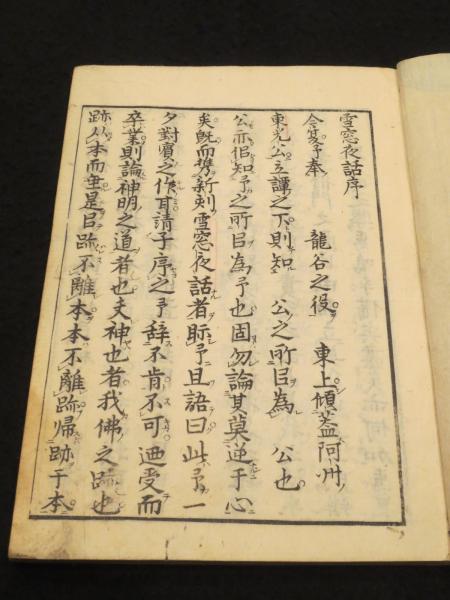 雪窓夜話序
今茲予奉　龍谷之後　東上傾蓋阿州
東光公立譚之下則知　公之所㠯為　公也
公亦佀知予之所㠯為予也固勿論其莫逆于心
矣既而携新刻雪窓夜話者眎予且語曰此予一
夕對賓之作耳請子序之予辭不肯不可迺受而
卒業則論神明之道者也夫神也者我佛之跡也
跡从本而垂是㠯跡不離本本不離跡歸跡于本